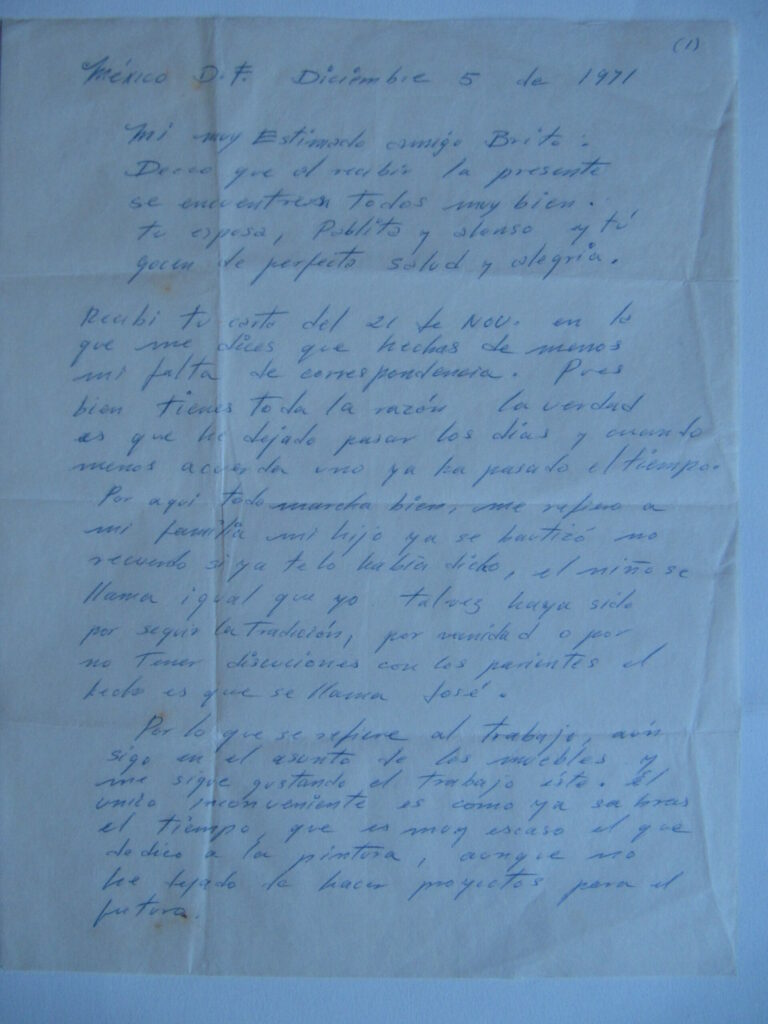 (1)
México D.F. Diciembre 5 de 1971
Mi muy Estimado amigo Brito:
Deceo que al recibir la presente
se encuentren todos muy bien.
tu esposa, Pablito y alonso y tú
gocen de perfecta salud y alegria.
Recibi tu carta del 21 de Nov. en la
que me dices que hechas de menos
mi falta de correspondencia. Pues
bien tienes toda la razón la verdad
es que he dejado pasar los días y cuando
menos acuerda uno ya ha pasado el tiempo.
Por aqui todo marcha bien, me refiero a
mi familia mi hijo ya se bautizó no
recuerdo si ya te lo había dicho, el niño se
llama igual que yo. talvez haya sido
por seguir la tradición, por vanidad o por
no tener discuciones con los parientes el
hecho es que se llama José.
Por lo que se refiere al trabajo, aún
sigo en el asunto de los muebles y
me sigue gustando el trabajo éste. El
unico inconveniente es como ya sabras
el tiempo, que es muy escaso el que
dedico a la pintura, aunque no
he dejado de hacer proyectos para el
futuro.